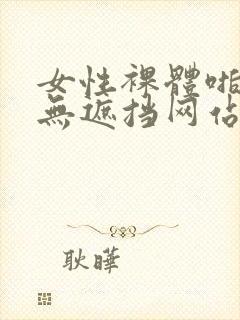 女性裸體啪
無遮挡网佔
耿曄